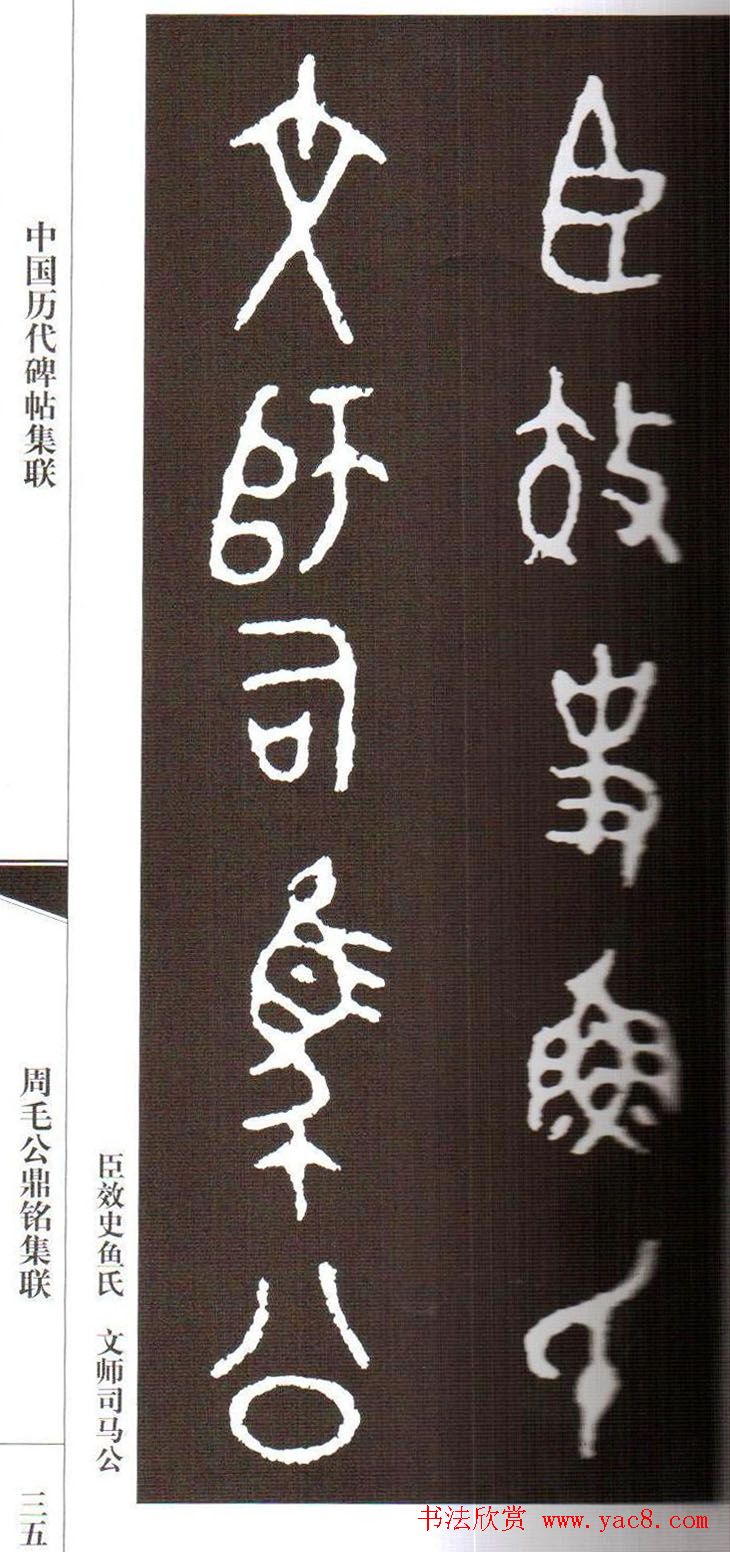 臣效史鱼氏
文师司马公
臣效史鱼氏 文师司马公
中国历代碑帖集联
周毛公鼎铭集联
三五
书法欣赏 www.yac8.com